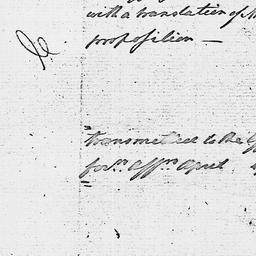 with a translation of
proposition —
transmitted to the
for.n Aff.rs April